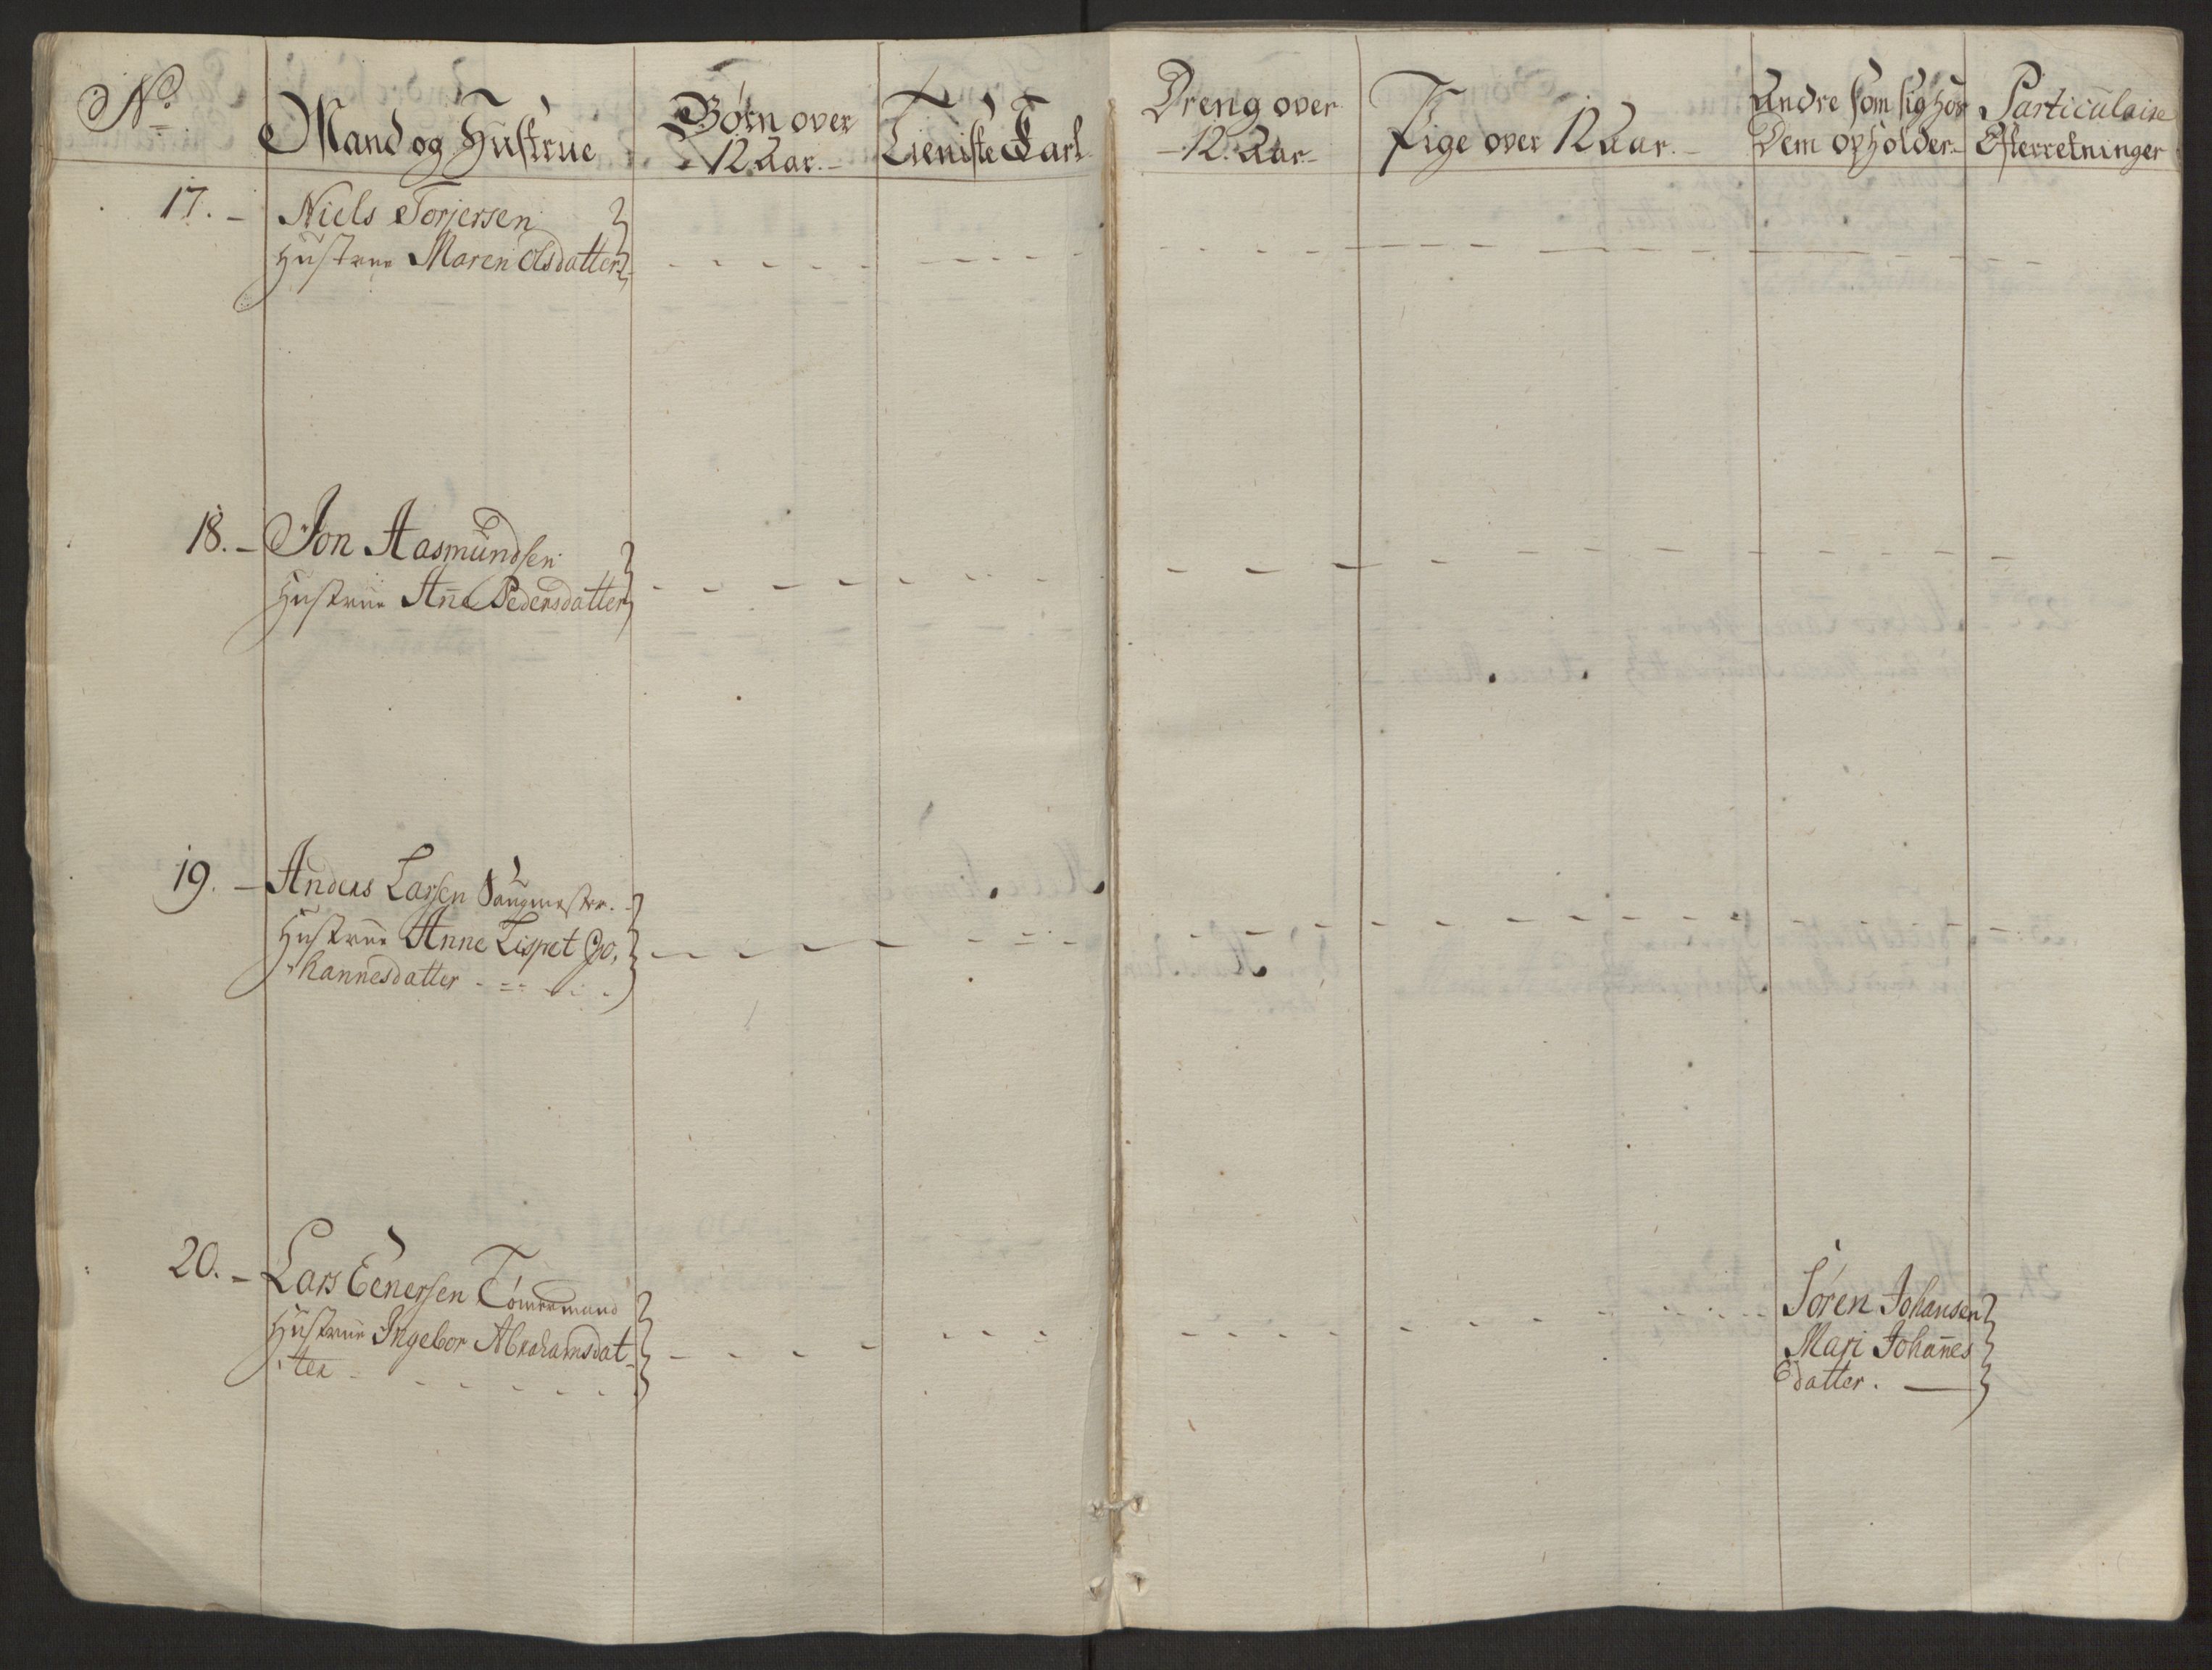 No.
Mand og Hustrue
Børn over
12 Aar.
Tieniste Karl
Dreng over
12. Aar
Pige over 12 Aar.
Andre som sig hos
Dem opholder
Particulaire
Efterretninger
17. Niels Torjersen
Hustrue Maren Olsdatter
18. Jon Aasmundsen
Hustrue Anne Pedersdatter
19. Anders Larsen Saugmester.
Hustrue Anne Lispet Jo,
hannesdatter
20. Lars Eenersen Tömermand
Hustrue Ingebor Abrahamsdat
ter
Sören Johansen
Mari Johan̄es
datter.